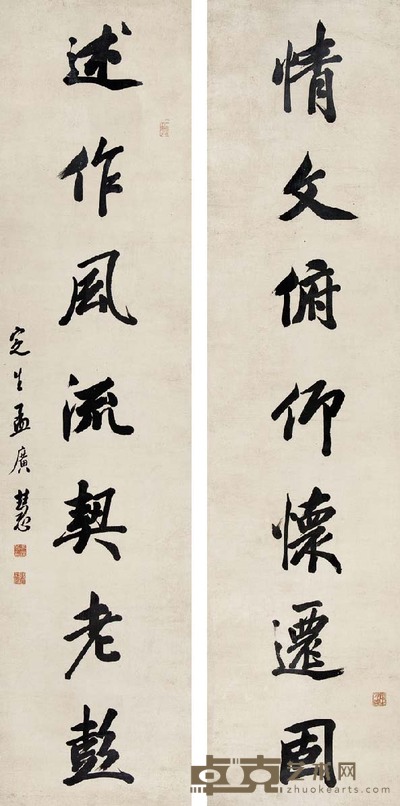 情文俯仰懷遷固
述作風流契老彭
定生孟廣慧
卓克艺术网
zhuokearts.com